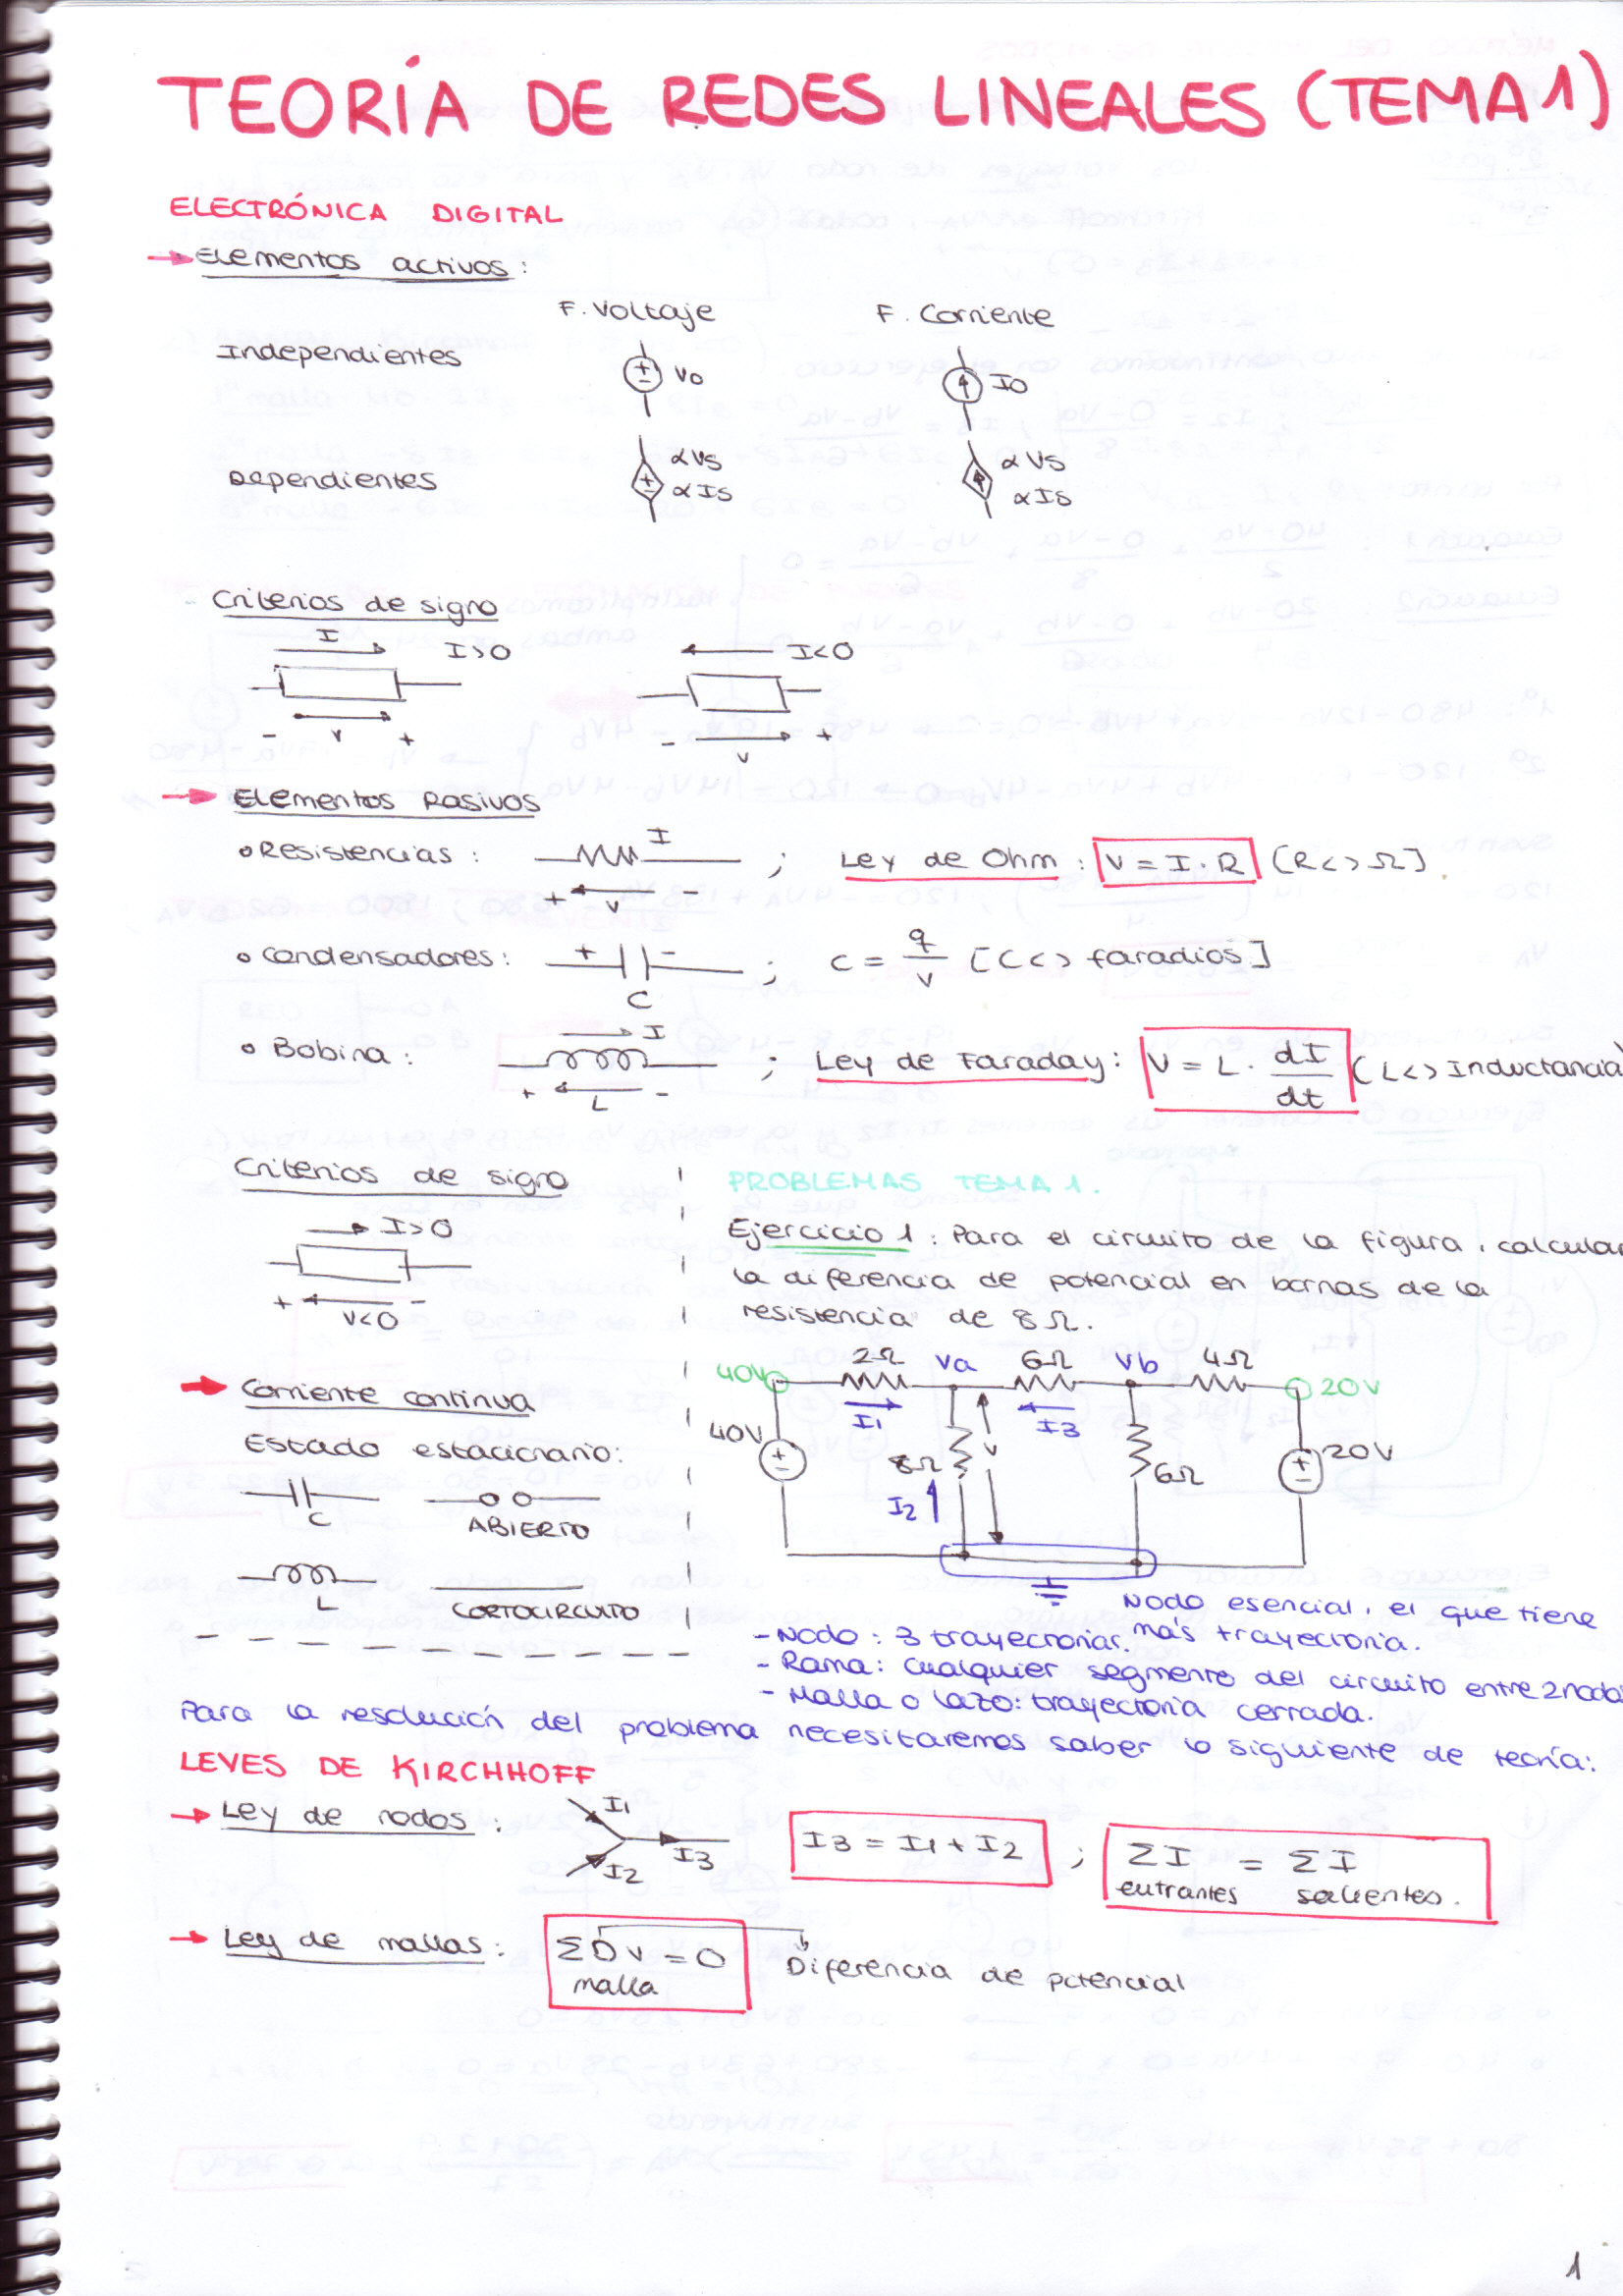 TEORÍA DE REDES LINEALES (TEMA 1)
ELECTRÓNICA DIGITAL
→ Elementos activos:
F. Voltaje F. Corriente
Independientes
+ - Vo
IO
Dependientes
+ - αVs αIs
αVs αIs
Criterios de signo
I I>0
I<0
- v +
- v +
→ Elementos Pasivos
o Resistencias: I + v - ; Ley de Ohm: V = I · R [R<>Ω]
o Condensadores: + - C ; C = q/v [C<> faradios]
o Bobina: I + L - ; Ley de Faraday: V = L · dI/dt (L<> Inductancia)
Criterios de signo
I>0
+ V<0 -
→ Corriente continua
Estado estacionario:
C ABIERTO
L CORTOCIRCUITO
PROBLEMAS TEMA 1.
Ejercicio 1: Para el circuito de la figura, calcular
la diferencia de potencial en bornas de la
resistencia de 8Ω.
40V 2Ω Va 6Ω Vb 4Ω 20V
I1 I3
40V + - 8Ω v 6Ω + - 20V
I2
Nodo esencial, el que tiene
más trayectoria.
- Nodo: 3 trayectorias.
- Rama: Cualquier segmento del circuito entre 2 nodos
- Malla o lazo: trayectoria cerrada.
Para la resolución del problema necesitaremos saber lo siguiente de teoría:
LEYES DE KIRCHHOFF
→ Ley de nodos: I1 I2 I3 I3 = I1 + I2 ; ΣI = ΣI
entrantes salientes.
→ Ley de mallas: ΣDv = 0 Diferencia de potencial
malla
1